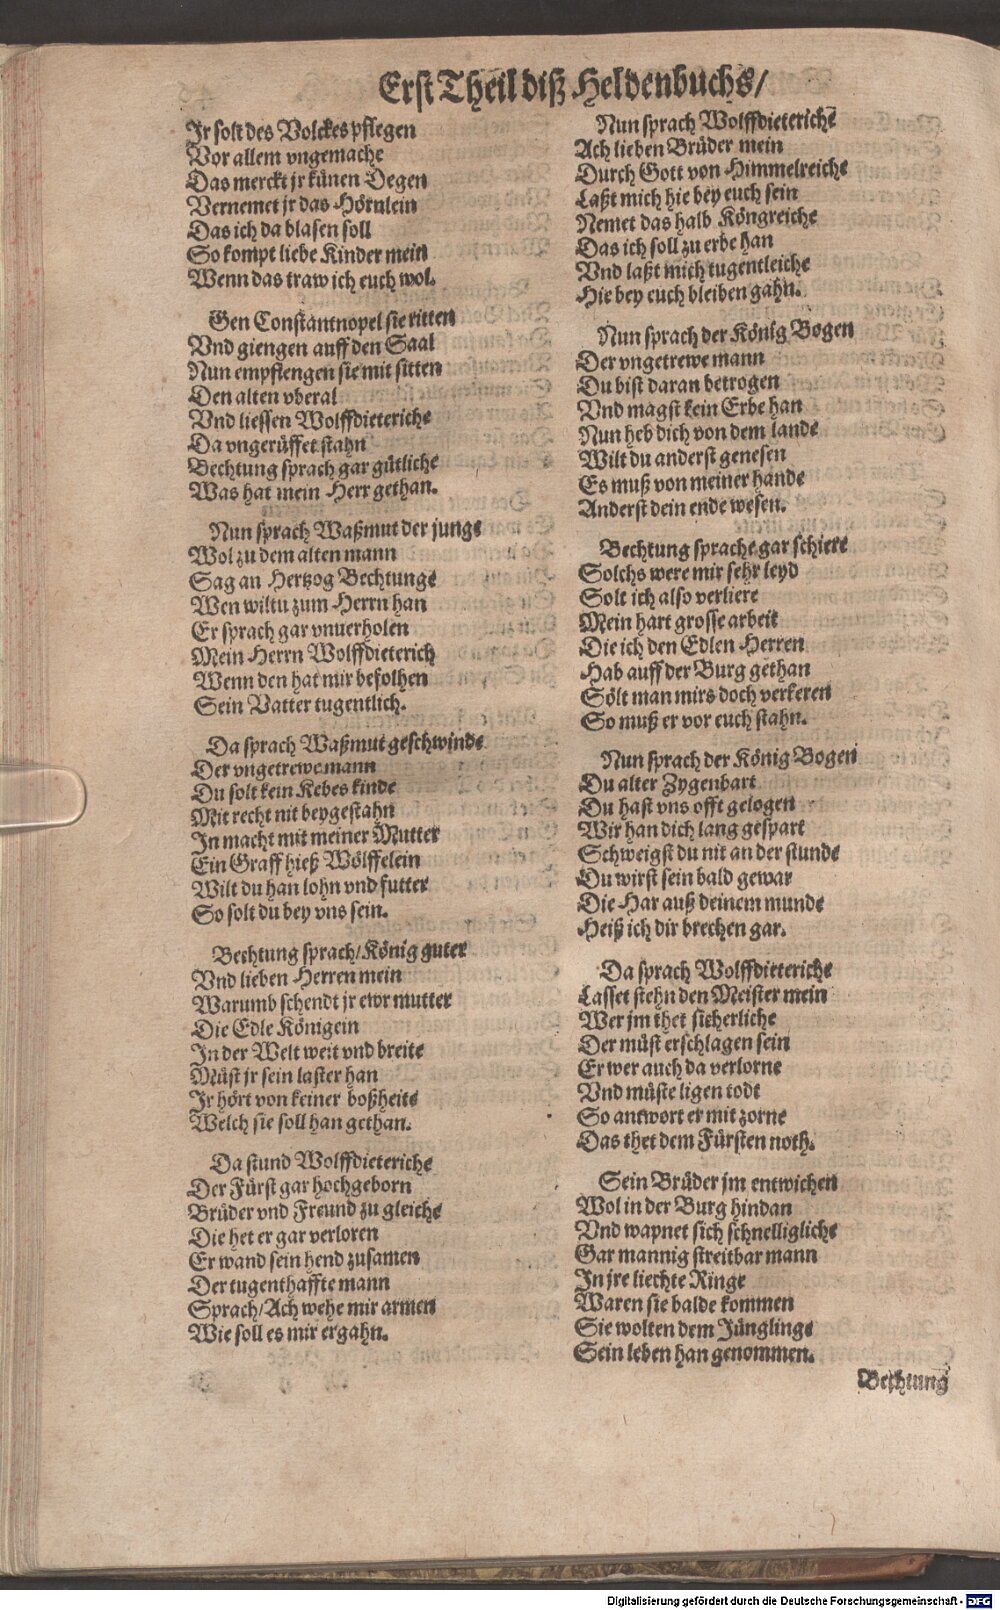 Erst Theil diß Heldenbuchs/
Jr solt des Volckes pflegen
Vor allem vngemache
Das merckt jr künen Degen
Vernemet jr das Hörnlein
Das ich da blasen soll
So kompt liebe Kinder mein
Wenn das traw ich euch wol.
Gen Constantnopel sie ritten
Vnd giengen auff den Saal
Nun empfiengen sie mit sitten
Den alten vberal
Vnd liessen Wolffdieteriche
Da vngerüffet stahn
Bechtung sprach gar gütliche
Was hat mein Herr gethan.
Nun sprach Waßmut der junge
Wol zu dem alten mann
Sag an Hertzog Bechtunge
Wen wiltu zum Herrn han
Er sprach gar vnuerholen
Mein Herrn Wolffdieterich
Wenn den hat mir befolhen
Sein Vatter tugentlich.
Da sprach Waßmut geschwinde
Der vngetrewe mann
Du solt kein Kebes kinde
Mit recht nit beygestahn
In macht mit meiner Mutter
Ein Graff hieß Wölffelein
Wilt du han lohn vnd futter
So solt du bey vns sein.
Bechtung sprach/König guter
Vnd lieben Herren mein
Warumb schendt jr ewr mutter
Die Edle Königein
In der Welt weit vnd breite
Müst jr sein laster han
Jr hört von keiner boßheite
Welch sie soll han gethan.
Da stund Wolffdieteriche
Der Fürst gar hochgeborn
Brüder vnd Freund zu gleiche
Die het er gar verloren
Er wand sein hend zusamen
Der tugenthaffte mann
Sprach/Ach wehe mir armen
Wie soll es mir ergahn.
Nun sprach Wolffdieteriche
Ach lieben Brüder mein
Durch Gott von Himmelreiche
Laßt mich hie bey euch sein
Nemet das halb Köngreiche
Das ich soll zu erbe han
Vnd laßt mich tugentleiche
Hie bey euch bleiben gahn.
Nun sprach der König Bogen
Der vngetrewe mann
Du bist daran betrogen
Vnd magst kein Erbe han
Nun heb dich von dem lande
Wilt du anderst genesen
Es muß von meiner hande
Anderst dein ende wesen.
Bechtung sprache gar schiere
Solchs were mir sehr leyd
Solt ich also verliere
Mein hart grosse arbeit
Die ich den Edlen Herren
Hab auff der Burg gethan
Sölt man mirs doch verkeren
So muß er vor euch stahn.
Nun sprach der König Bogen
Du alter Zygenbart
Du hast vns offt gelogen
Wir han dich lang gespart
Schweigst du nit an der stunde
Du wirst sein bald gewar
Die Har auß deinem munde
Heiß ich dir brechen gar.
Da sprach Wolffdieteriche
Lasset stehn den Meister mein
Wer jm thet sicherliche
Der müst erschlagen sein
Er wer auch da verlorne
Vnd müste ligen todt
So antwort er mit zorne
Das thet dem Fürsten noth.
Sein Brüder jm entwichen
Wol in der Burg hindan
Vnd wapnet sich schnelligliche
Gar mannig streitbar mann
In jre liechte Ringe
Waren sie balde kommen
Sie wolten dem Jünglinge
Sein leben han genommen.
Bechtung
Digitalisierung gefördert durch die Deutsche Forschungsgemeinschaft - DFG